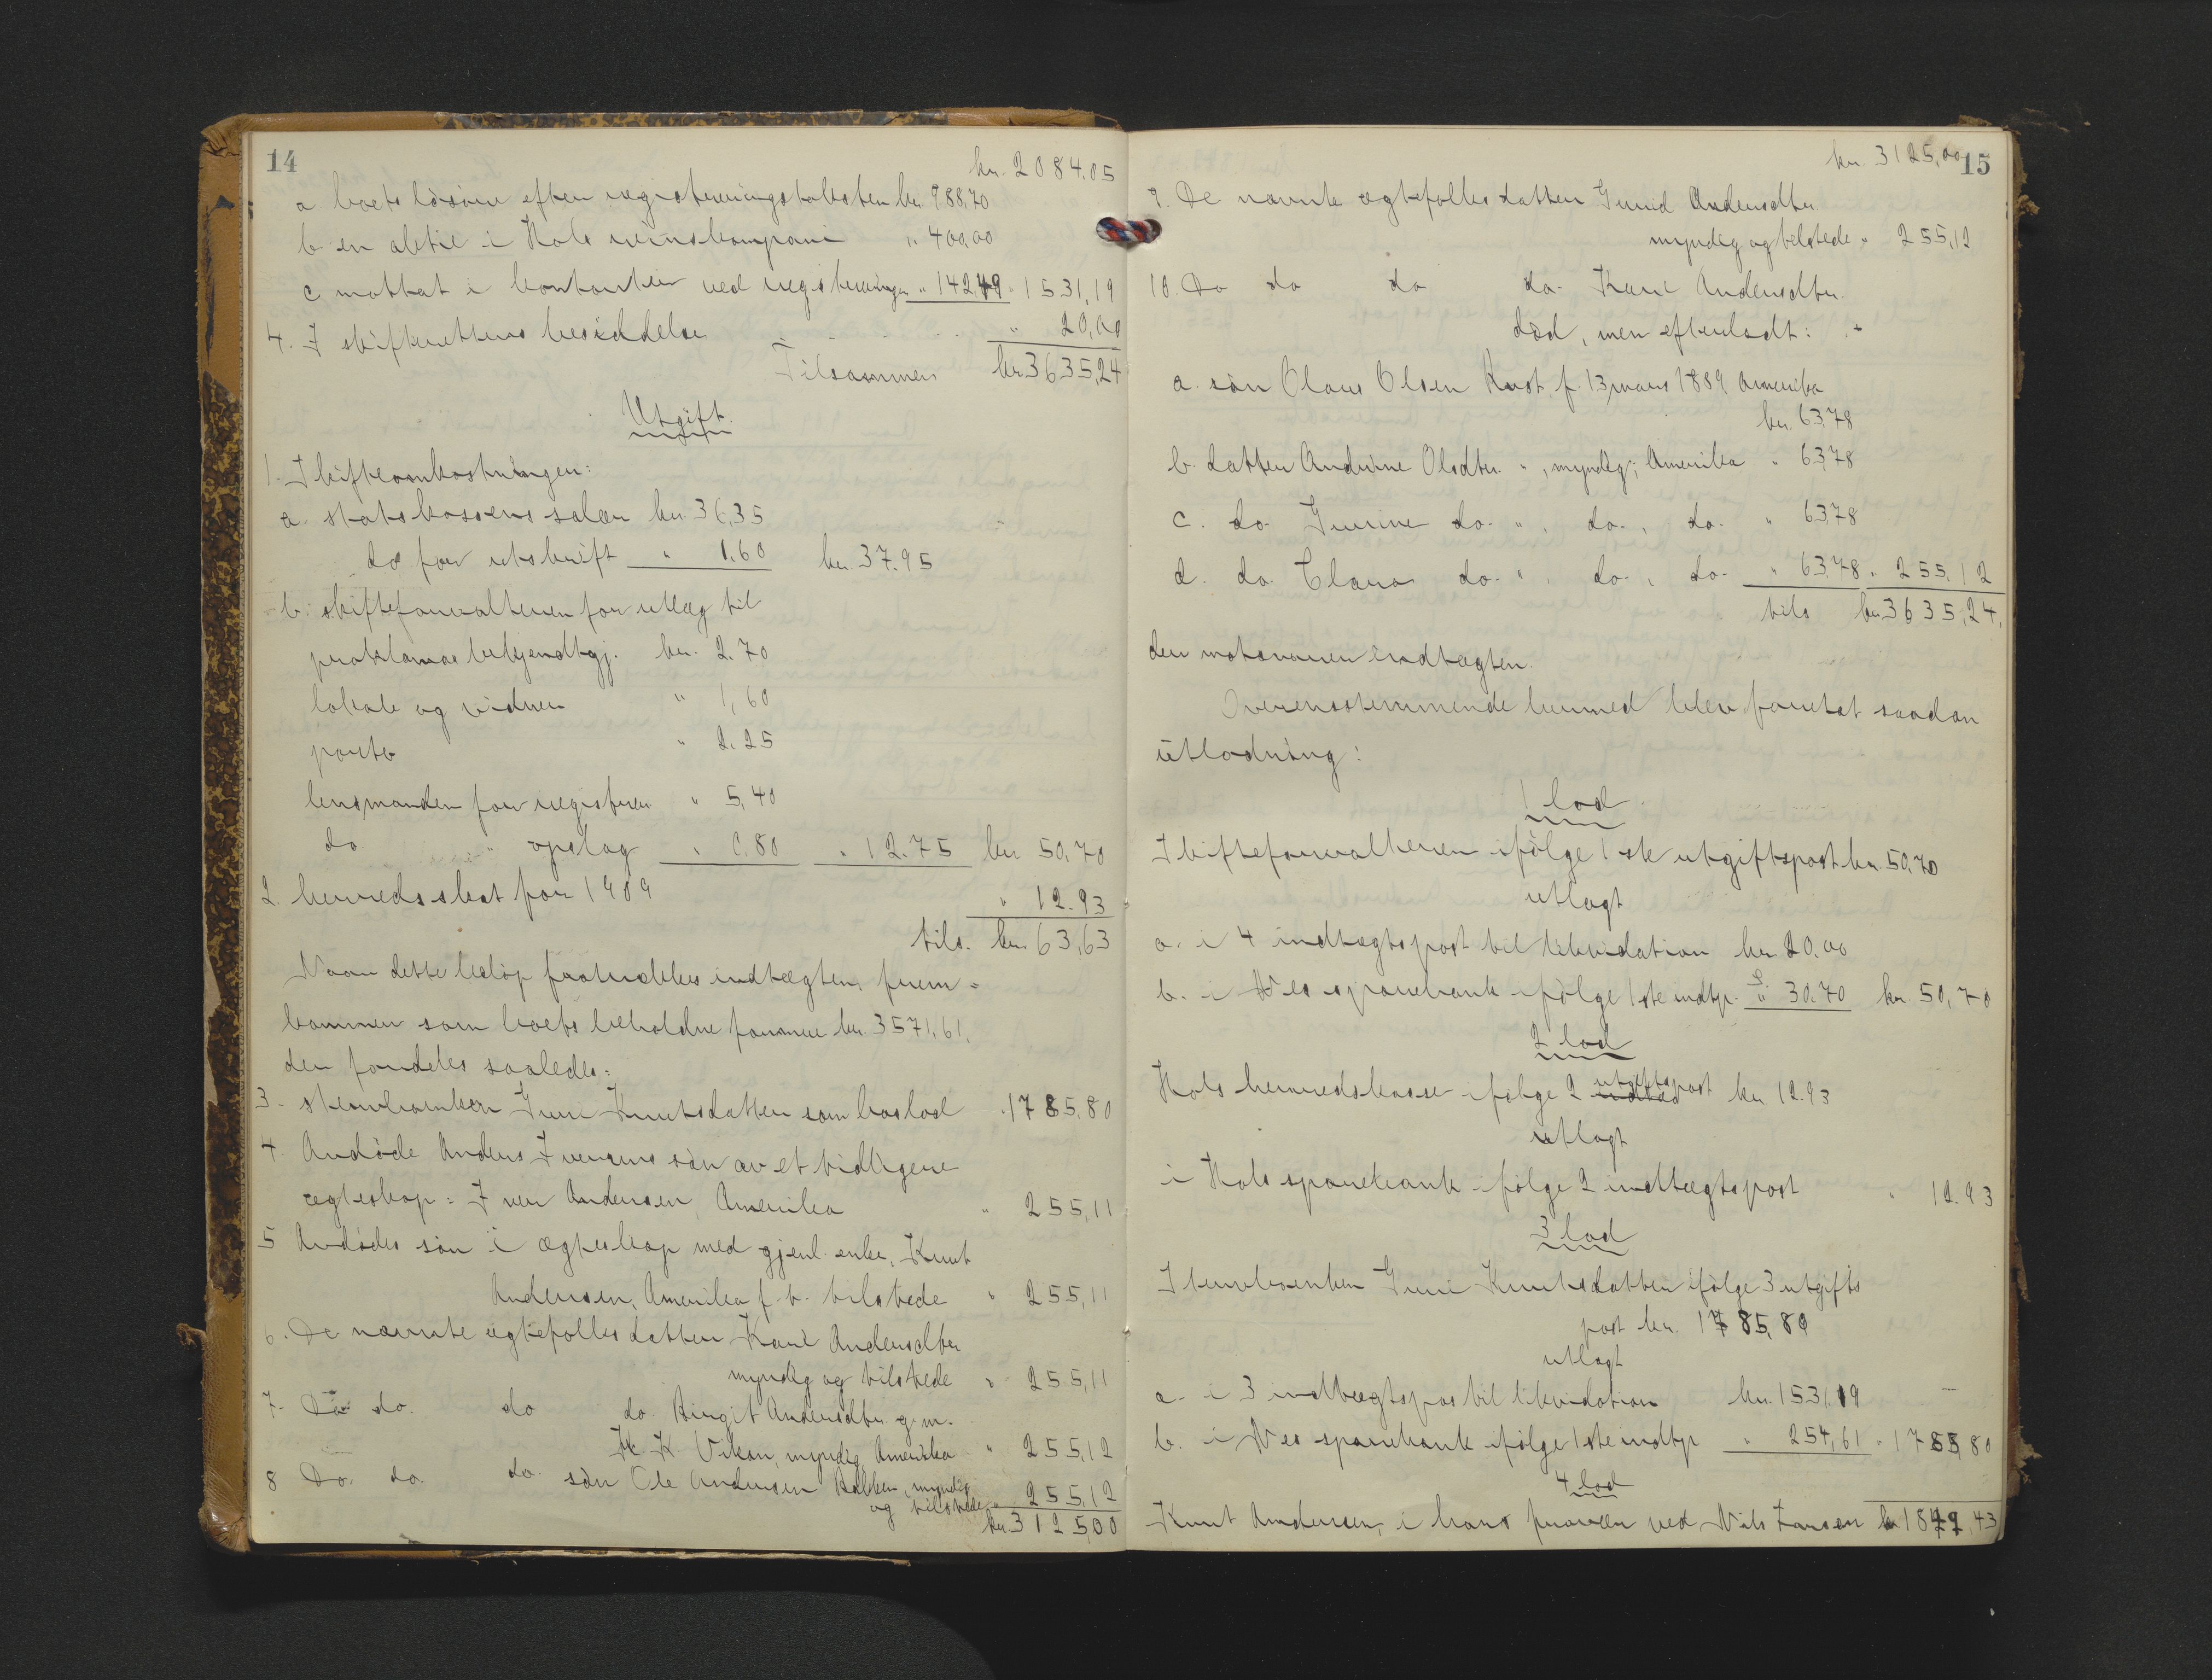 14
kr. 2084,05
a boets løsøre efter registreringstaksten kr. 988,70
b en aktie i Hols reinskompani " 400,00
c mottat i kontanter ved registreringen " 142,49 " 1531,19
4. I skifterettens besiddelse " 20,00
Tilsammen kr. 3635,24
Utgift.
1. Skifteomkostninger:
a. statskassens salær kr. 36,35
do for utskrift " 1.60 kr. 37.95
b. skifteforvalteren for utlæg til
proklamas bekjendtgj. kr. 2.70
lokale og vidner " 1,60
porto " 2.25
lensmanden for registrer. " 5,40
do " opslag " 0.80 " 12.75 kr 50,70
2. herredsskat for 1909 " 12.93
tils. kr. 63,63
Naar dette beløp fratrækkes indtægten, frem-
kommer som boets beholdne formue kr. 3571,61,
der fordeles saaledes:
3. stervboenken Guri Knutsdatter som boslod " 1785,80
4. Avdøde Anders Iversens søn av et tidligere
ægteskap: Iver Andersen, Amerika " 255,11
5 Avdødes søn i ægteskap med gjenl. enke, Knut
Andersen, Amerika f. t. tilstede " 255,11
6. De nævnte ægtefolks datter Kari Andersdtr.
myndig og tilstede " 255,11
7. Do do. do do. Birgit Andersdtr. g. m.
K. K. Vikan, myndig, Amerika " 255,12
8 Do. do. do. søn Ole Andersen Bakken, myndig
og tilstede " 255,12
kr. 3125,00
kr. 3125,00
15
9. De nævnte ægtefolks datter Gunild Andersdtr.
myndig og tilstede " 255,12
10. Do do do do. Kari Andersdtr.
død, men efterladt:
a. søn Olaus Olsen Rust, f. 13 mars 1889 Amerika
kr. 63,78
b. datter Andrine Olsdtr. ", myndig, Amerika " 63,78
c. do. Gunine do. ", do., do. " 63,78
d. do. Clara do. ", do., do. " 63,78 " 255,12
tils kr. 3635,24,
der motsvarer indtægten.
Overensstemmende hermed blev foretat saadan
utlodning:
1 lod
Skifteforvalteren ifølge 1ste utgiftspost kr. 50,70
utlagt
a. i 4 indtægtspost til likvidation kr 20.00
b. i Nes sparebank ifølge 1ste indtp. " 30.70 kr. 50,70
2 lod
Hols herredskasse ifølge 2 utgiftspost kr 12.93
utlagt
i Hols sparebank ifølge 2 indtægtspost " 12.93
3 lod
Stervboenken Guri Knutsdatter ifølge 3 utgifts
post kr. 1785,80
utlagt
a. i 3 indtægtspos til likvidation kr. 1531,19
b. i Nes sparebank ifølge 1ste indtp " 254,61 " 1785,80
4 lod
Knut Andersen, i hans fravær ved Nils Larsen kr 1849,43